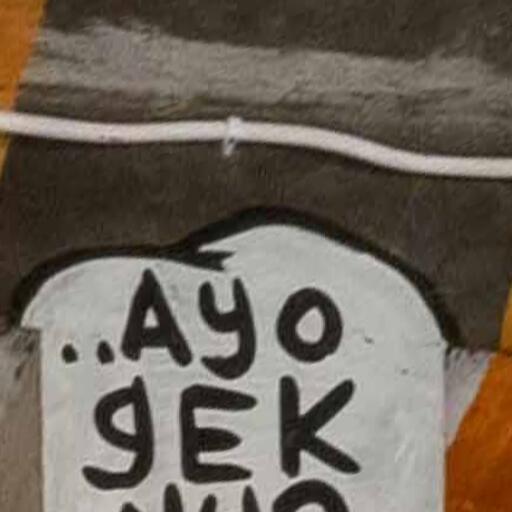 ..AYO
GEK